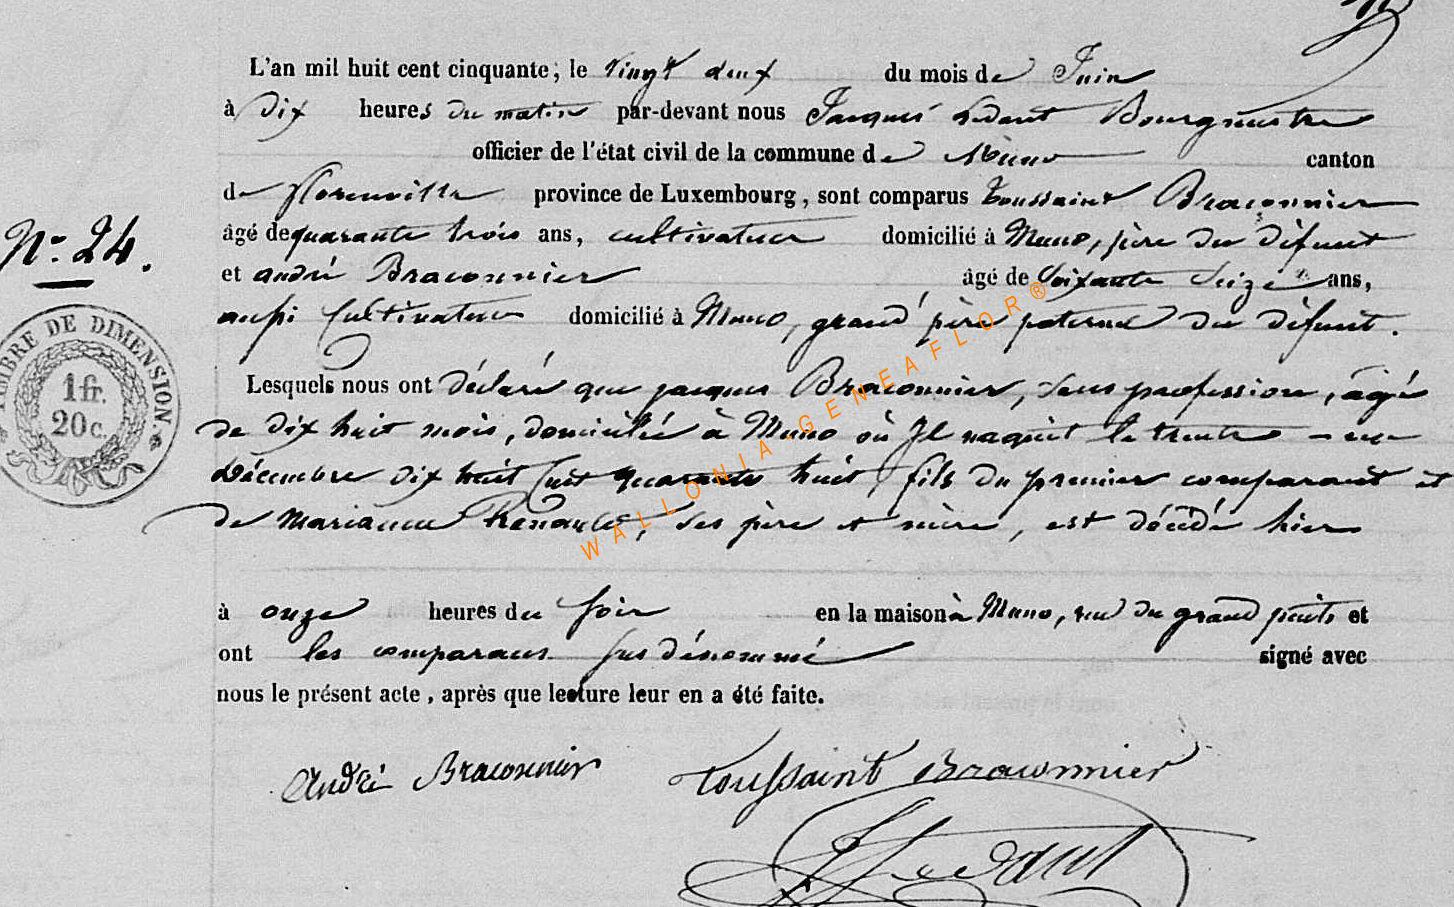 L'an mil huit cent cinquante, le vingt deux du mois de Juin
à dix heures du matin par-devant nous Jacques Ledant Bourgmestre
officier de l'état civil de la commune de Muno canton
de florenville province de Luxembourg, sont comparus toussaint Braconnier
âgé de quarante trois ans, cultivateur domicilié à Muno, père du défunt
N° 24.
et andré Braconnier âgé de Soixante Seize ans,
aussi Cultivateur domicilié à Muno, grand père paternel du défunt.
TIMBRE DE DIMENSION.
1 fr.
20 c.
Lesquels nous ont déclaré que jacques Braconnier, sans profession, âgé
de dix huit mois, domicilié à Muno où Il naquit le trente un
Décembre dix huit Cent quarante huit, fils du premier comparant et
de Marianne, ses père et mère, est décédé hier
à onze heures du soir en la maison à Muno, rue du grand puits et
ont les comparans susdénommé signé avec
nous le présent acte, après que lecture leur en a été faite.
André Braconnier Toussaint Braconnier
J Ledant
WALLONIA GENEAFLOR®